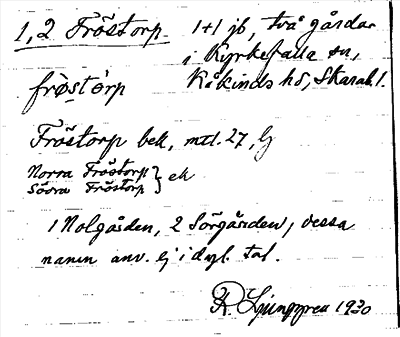 1,2 Fröstorp. 1+1 jb, två gårdar
i Kyrkefalla sn,
Kåkinds hd, Skarab. l.
fròstòrp
Fröstorp bek, mtl. 27, Ej
Norra Fröstorp } ek
Södra Fröstorp
1 Nolgården, 2 Sörgården, dessa
namn anv. ej i dagl. tal.
R Ljunggren 1930